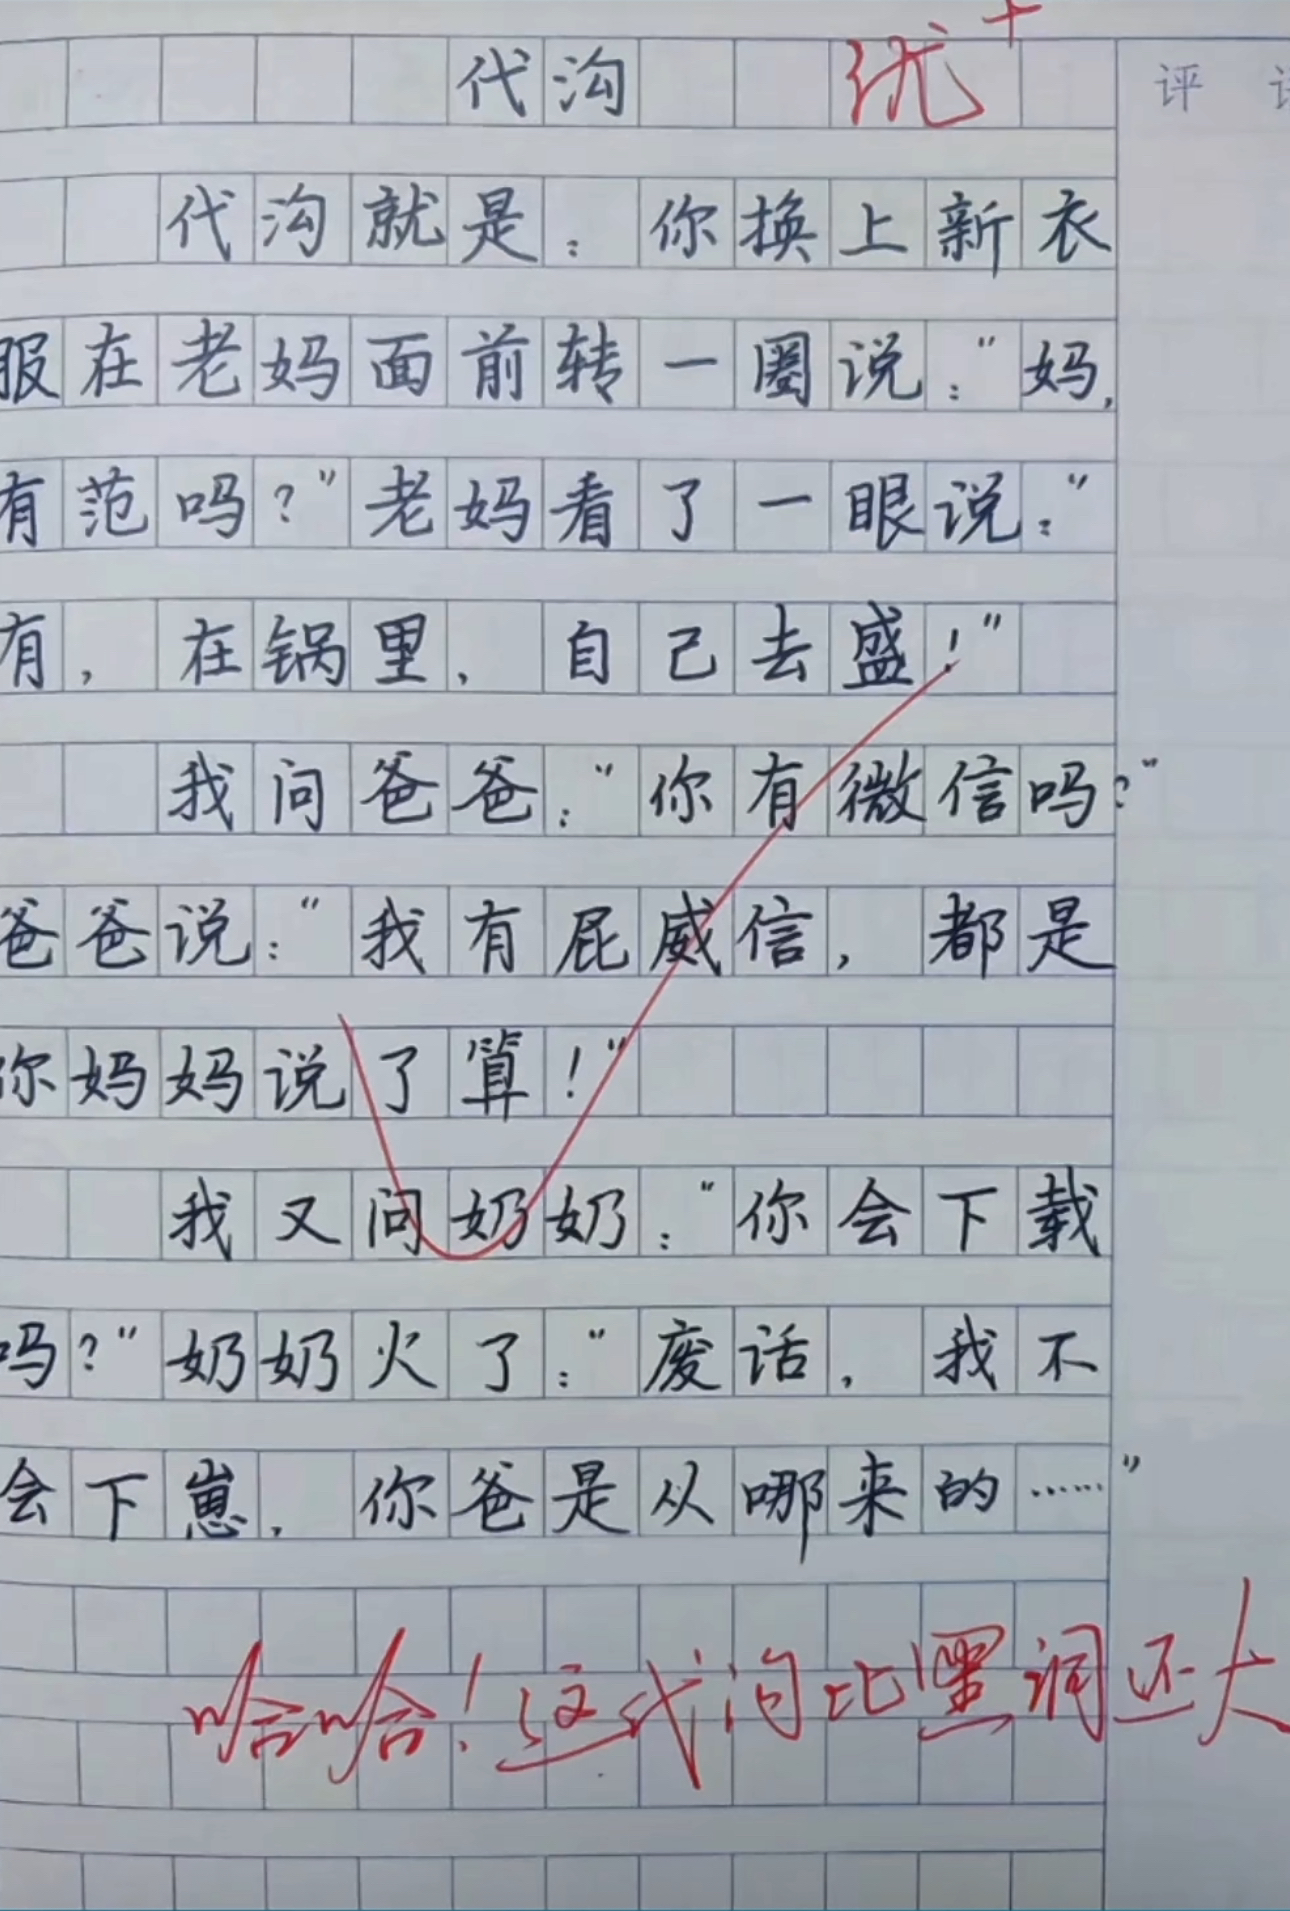 代沟 优+
评
代沟就是：你换上新衣
服在老妈面前转一圈说：“妈，
有范吗？”老妈看了一眼说：“
有，在锅里，自己去盛！”
我问爸爸：“你有微信吗？”
爸爸说：“我有屁威信，都是
你妈妈说了算！”
我又问奶奶：“你会下载
吗？”奶奶火了：“废话，我不
会下崽，你爸是从哪来的……”
哈哈！这代沟比黑洞还大